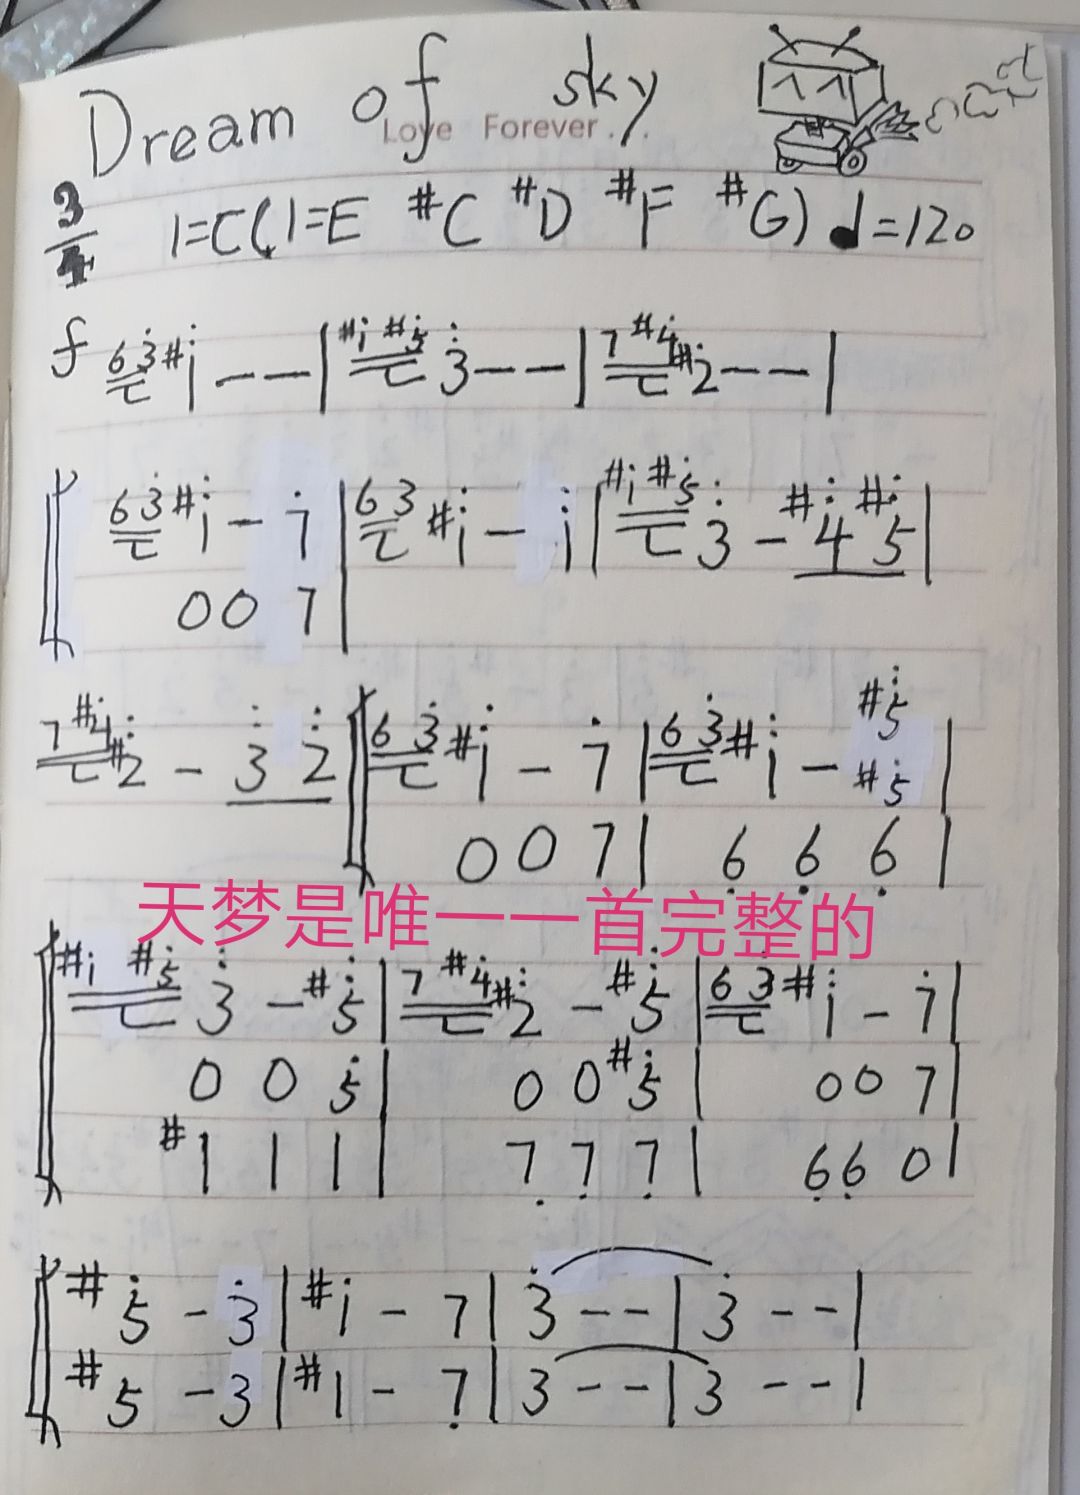 Dream of sky
Love Forever..
3/4 1=C(1=E #C #D #F #G) ♩=120
f 6 3̇ #1̇ - - | #1̇ #5̇ 3̇ - - | 7 #4̇ #2̇ - - |
6 3̇ #1̇ - 7̇ | 6 3 #1̇ - 1̇ | #1̇ #5̇ 3̇ - #4̇ #5̇ |
0 0 7 |
7 #4̇ #2̇ - 3̇ 2̇ | 6 3̇ #1̇ - 7̇ | 6 3̇ #1̇ - #5̇ |
#5̇
0 0 7 | 6̣ 6̣ 6̣ |
天梦是唯一一首完整的
#1̇ #5̇ 3̇ - #5̇ | 7 #4̇ #2̇ - #5̇ | 6 3 #1̇ - 7̇ |
0 0 5̇ | 0 0 #5̇ | 0 0 7 |
#1 1 1 | 7̣ 7̣ 7̣ | 6̣ 6̣ 0 |
#5̇ - 3̇ | #1̇ - 7 | 3̇ - - | 3̇ - - |
#5 - 3 | #1 - 7̣ | 3 - - | 3 - - |